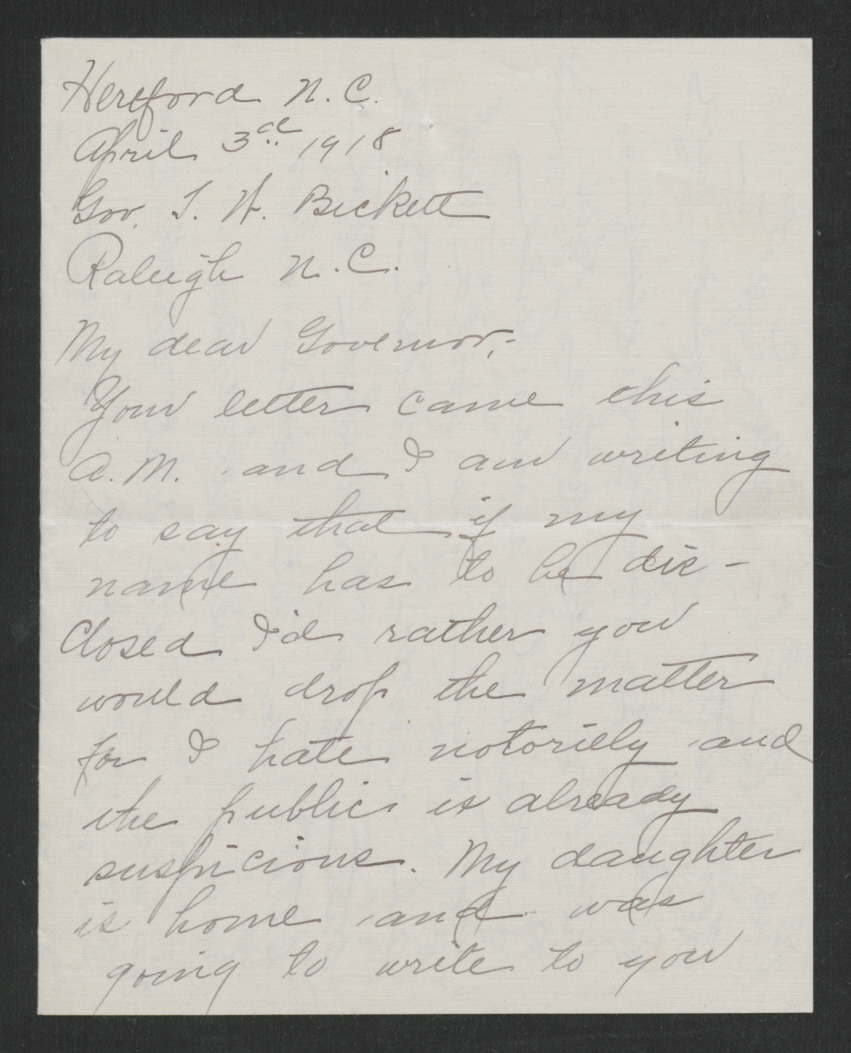 Hereford N.C.
April 3rd 1918
Gov. T. W. Bickett
Raleigh N.C.
My dear Governor;-
Your letter came this
A.M. and I am writing
to say that if my
name has to be dis-
closed I'd rather you
would drop the matter
for I hate notoriety and
the public is already
suspicious. My daughter
is home and was
going to write to you